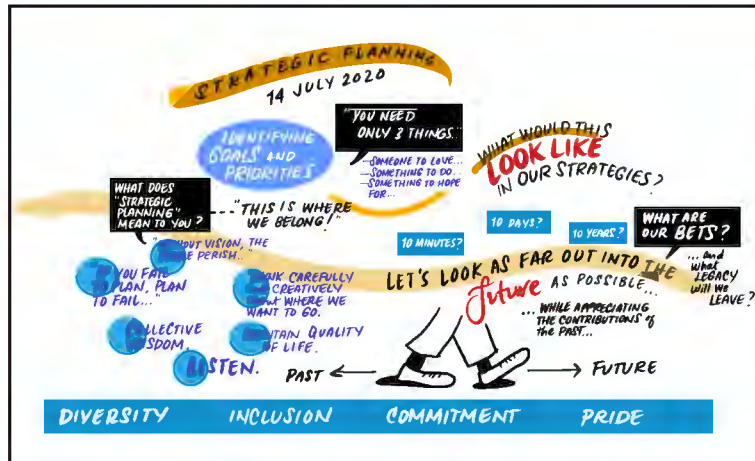 STRATEGIC PLANNING
14 JULY 2020
IDENTIFYING
GOALS AND
PRIORITIES
"YOU NEED
ONLY 3 THINGS...
—SOMEONE TO LOVE...
—SOMETHING TO DO...
—SOMETHING TO HOPE
FOR...
WHAT WOULD THIS
LOOK LIKE
IN OUR STRATEGIES?
WHAT DOES
"STRATEGIC
PLANNING"
MEAN TO YOU?
"THIS IS WHERE
WE BELONG!"
VISION, THE
PERISH..."
YOU FAIL
TO PLAN, PLAN
TO FAIL..."
CAREFULLY
CREATIVELY
WHERE WE
WANT TO GO.
COLLECTIVE
WISDOM.
MAINTAIN QUALITY
OF LIFE.
LISTEN.
10 MINUTES?
10 DAYS?
10 YEARS?
WHAT ARE
OUR BETS?
... and
what
LEGACY
will we
LEAVE?
LET'S LOOK AS FAR OUT INTO THE
future AS POSSIBLE...
... WHILE APPRECIATING
THE CONTRIBUTIONS of
the PAST...
PAST
FUTURE
DIVERSITY INCLUSION COMMITMENT PRIDE